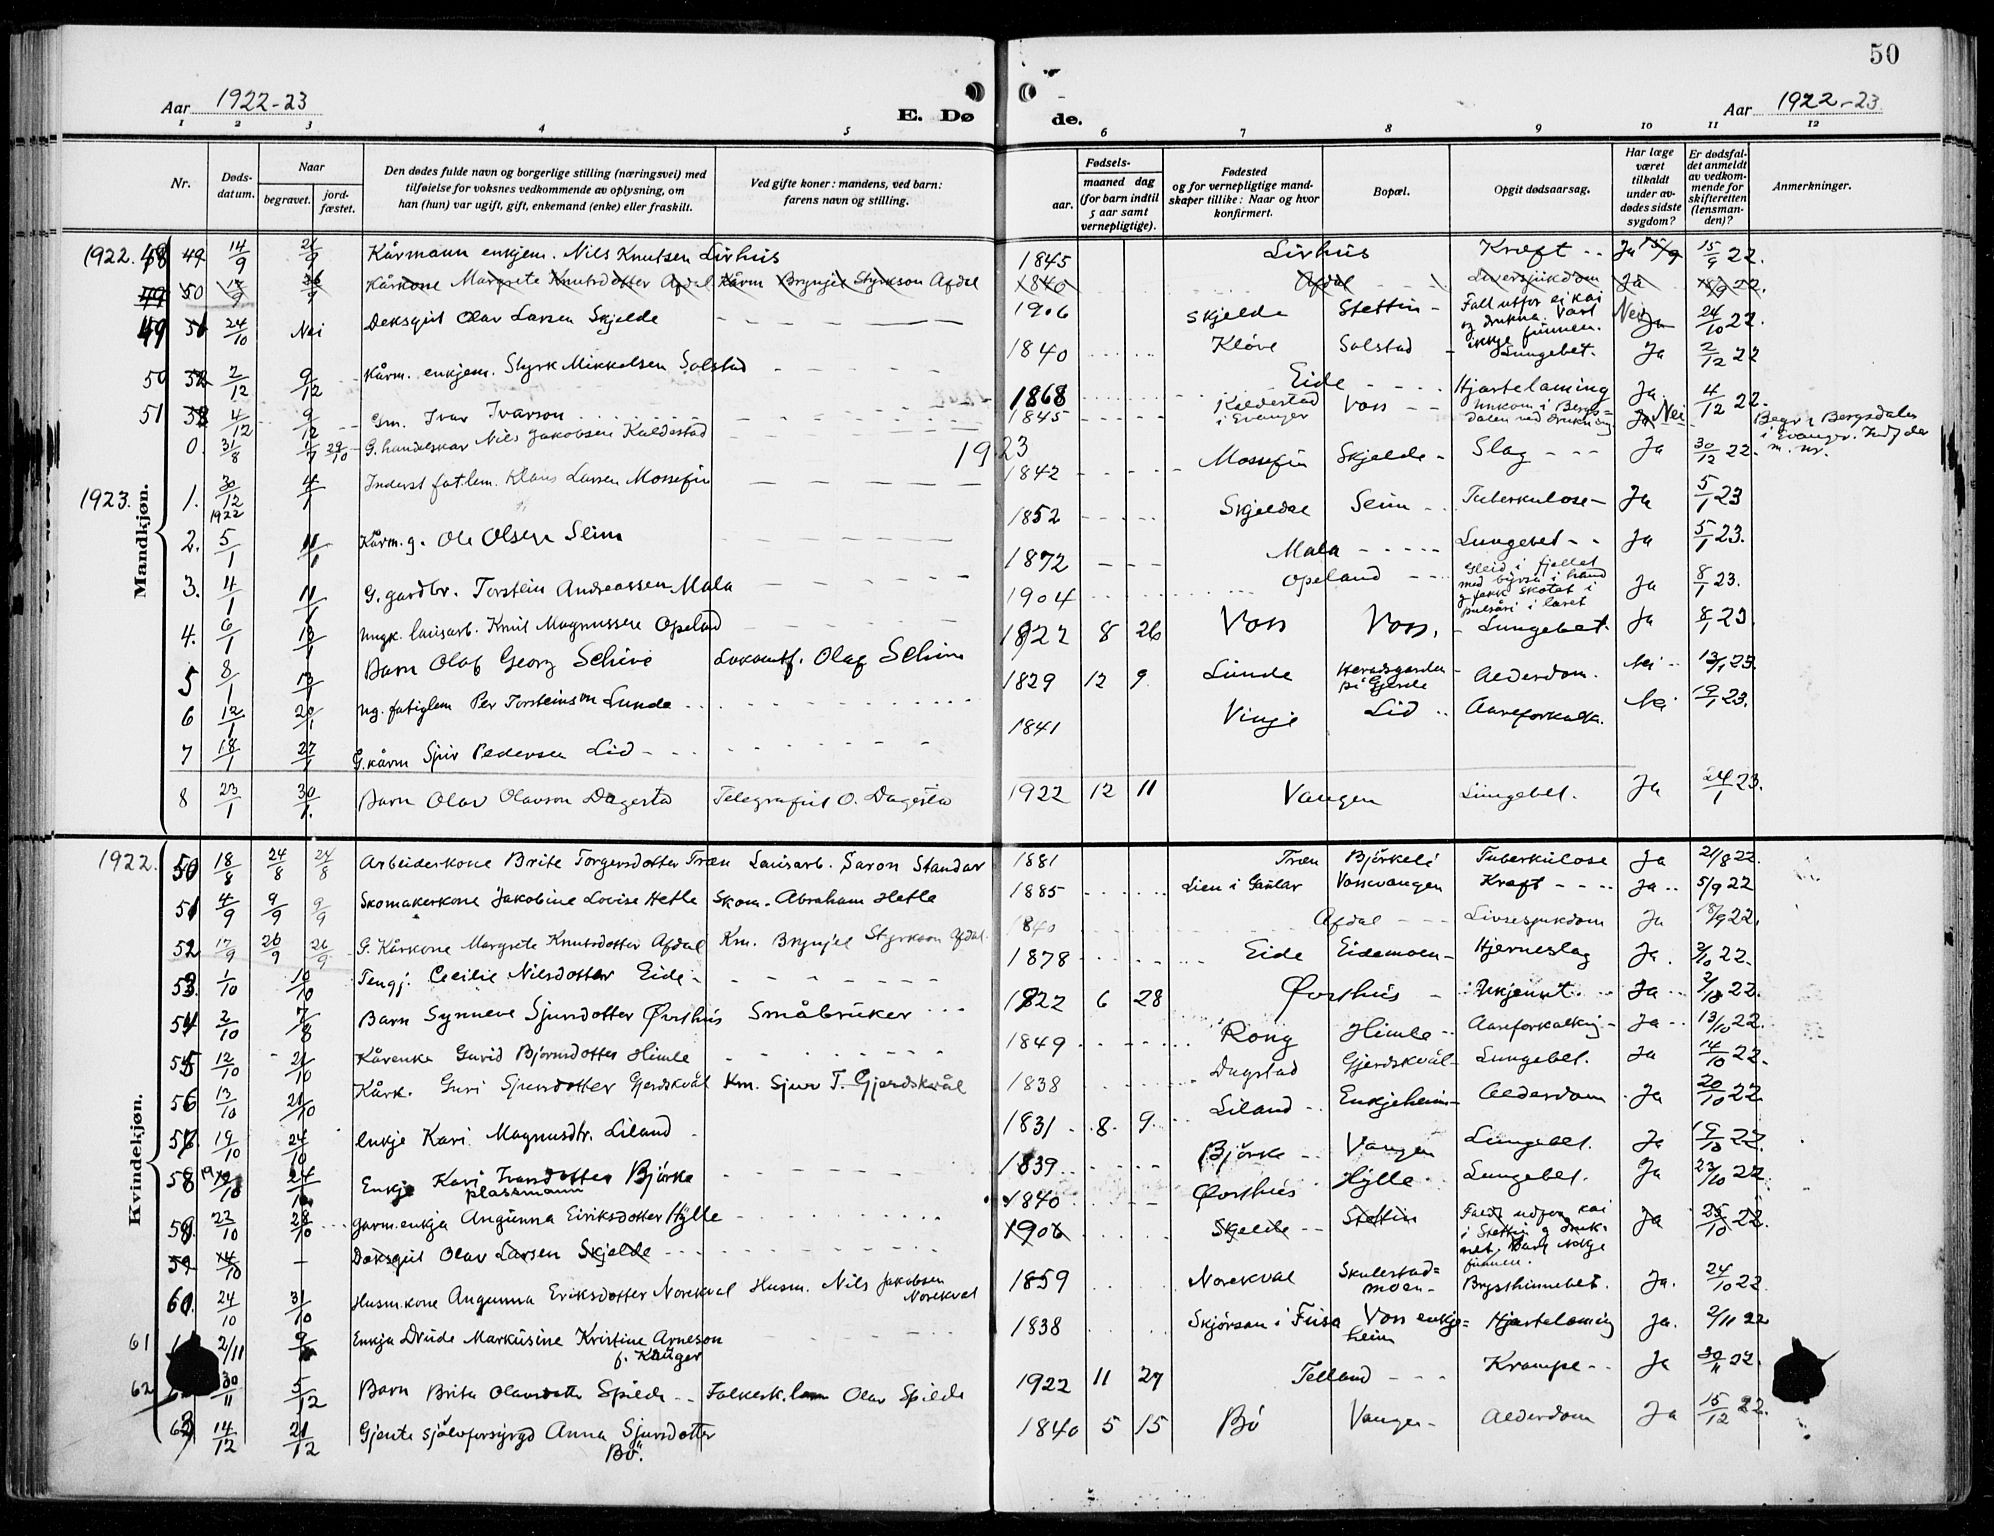 50
Aar 1922-23
E. Dø
de.
Aar 1922-23.
1 2 3 4 5 6 7 8 9 10 11 12
Nr.
Døds-datum.
Naar
begravet.
jord-fæstet.
Den dødes fulde navn og borgerlige stilling (næringsvei) med
tilføielse for voksnes vedkommende av oplysning, om
han (hun) var ugift, gift, enkemand (enke) eller fraskilt.
Ved gifte koner: mandens, ved barn:
farens navn og stilling.
aar.
Fødsels-
maaned dag
(for barn indtil
5 aar samt
vernepligtige).
Fødested
og for vernepligtige mand-
skaper tillike: Naar og hvor
konfirmert.
Bopæl.
Opgit dødsaarsag.
Har læge
været
tilkaldt
under av-
dødes sidste
sygdom?
Er dødsfal-
det anmeldt
av vedkom-
mende for
skifteretten
(lensman-
den)?
Anmerkninger.
Mandkjøn.
1922. 48 49 14/9 21/9 Kårmann enkjem. Nils Knutsen Lirhus 1845 Lirhus Kræft Ja 15/9 22.
50 17/9 26/9 Kårkone Margrete Knutsdotter Afdal Kårm Brynjel Styrkson Afdal 1840 Afdal Liversjukdom Ja 18/9 22.
49 24/10 Nei Deksgut Olav Larsen Skjelde 1906 Skjelde Stettin Fall utfor ei kai og drukna. Vart ikkje funnen. Nei 24/10 22.
50 52 2/12 9/12 Kårm. enkjem. Styrk Mikkelsen Solstad 1840 Kløve Solstad Lungebet. Ja 2/12 22
51 53 4/12 9/12 Gm. Ivar Ivarson 1868 Eide Hjartelaming Ja 4/12 22.
0. 31/8 29/10 G. handelskar Nils Jakobsen Kaldestad 1845 Kaldestad i Evanger Voss Umkom i Bergsdalen ved drukning Nei Begr. i Bergsdalen i Evanger. Indf der m. nr.
1923
1923. 1. 30/12 1922 4/1 Inderst fat.lem. Klaus Larsen Mossefin 1842 Mossefin Skjelde Slag Ja 30/12 22.
2. 5/1 11/1 Kårm. g. Ole Olsen Seim 1852 Skjeldal Seim Tuberkulose Ja 5/1 23
3. 4/1 11/1 G. gardbr. Torstein Andreassen Mala 1872 Mala Lungebet Ja 5/1 23.
4. 6/1 13/1 Ungk. lausarb. Knut Magnussen Opeland 1904 Opeland Gleid i fjellet med byrsa i hand og fekk skotet i pulsåri i laret Ja 8/1 23.
5 8/1 13/1 Barn Olaf Georg Schive Lokomtf. Olaf Schive 1922 8 26 Voss Voss. Lungebet. Ja 8/1 23.
6 12/1 20/1 Ug. fatiglem Per Torsteinson Lunde 1829 12 9 Lunde Heradsgarden på Gjerde Alderdom. Nei 13/1 23.
7 18/1 27/1 G. kårm Sjur Pedersen Lid 1841 Vinje Lid Aareforkalk. Nei 19/1 23.
8 23/1 30/1. Barn Olav Olavson Dagestad Telegrafist O. Dagestad 1922 12 11 Vangen Lungebet. Ja 24/1 23.
Kvindekjøn.
1922. 50 18/8 24/8 24/8 Arbeiderkone Brite Torgersdotter Træn Lausarb. Saron Standar 1881 Træn Bjørkeli Tuberkulose Ja 21/8 22.
51 4/9 9/9 9/9 Skomakerkone Jakobine Lovise Hetle Skom. Abraham Hetle 1885 Lien i Gaular Vossevangen Kræft Ja 5/9 22
52 17/9 26/9 26/9 G. Kårkone Margrete Knutsdotter Afdal Km. Brynjel Styrkson Afdal 1840 Afdal Livsesjukdom Ja 18/9 22.
53. 1/10 10/10 Tengj. Cecilie Nilsdotter Eide 1878 Eide Eidemoen Hjerneslag Ja. 3/10 22.
54 2/10 7/8 Barn Synneve Sjursdotter Øvsthus Småbruker 1922 6 28 Øvsthus Ukjennt. Ja 2/10 22.
55 12/10 21/10 Kårenke Gurid Bjørnsdotter Himle 1849 Rong Himle Aareforkalkig Ja 13/10 22.
56 13/10 21/10 Kårk. Guri Sjursdotter Gjerdskvål Km. Sjur T. Gjerdskvål 1838 Dagstad Gjerdskvål Lungebet. Ja 14/10 22.
57. 19/10 24/10 Enkje Kari Magnusdtr. Liland 1831 8 9 Liland Enkjeheim Alderdom Ja 20/10 22
58 19/10 24/10 Enkje Kari Ivarsdotter Bjørke 1839 Bjørke Vangen Lungebet. Ja 19/10 22.
59. 22/10 28/10 plassmann Garm. enkja Angunna Eiriksdotter Hylle 1840 Øvsthus Hylle Lungebet. Ja 23/10 22
59 24/10 Doksgut Olav Larsen Skjelde 1906 Skjelde Stettin Faldt udfor kai i Stettin og druknet. Vart ikkje funnen. Ja 25/10 22.
60. 24/10 31/10 Husm.kone Angunna Eriksdotter Norekval Husm. Nils Jakobsen Norekval 1859 Norekval Skulestadmoen Brysthinnebet. Ja. 24/10 22.
61 2/11 9/ Enkja Drude Markusine Kristine Arneson f. Krüger 1838 Skjørsan i Fusa Voss enkjeheim Hjartelaming Ja. 2/11 22
62 30/11 5/12 Barn Brita Olavsdotter Spilde Folkesk.lem Olav Spilde 1922 11 27 Telland Krampe Ja 30/11 22.
63 14/12 21/12 Gjente sjølvforsyrgd Anna Sjursdotter Bø. 1840 5 15 Bø Vangen Alderdom Ja 15/12 22.